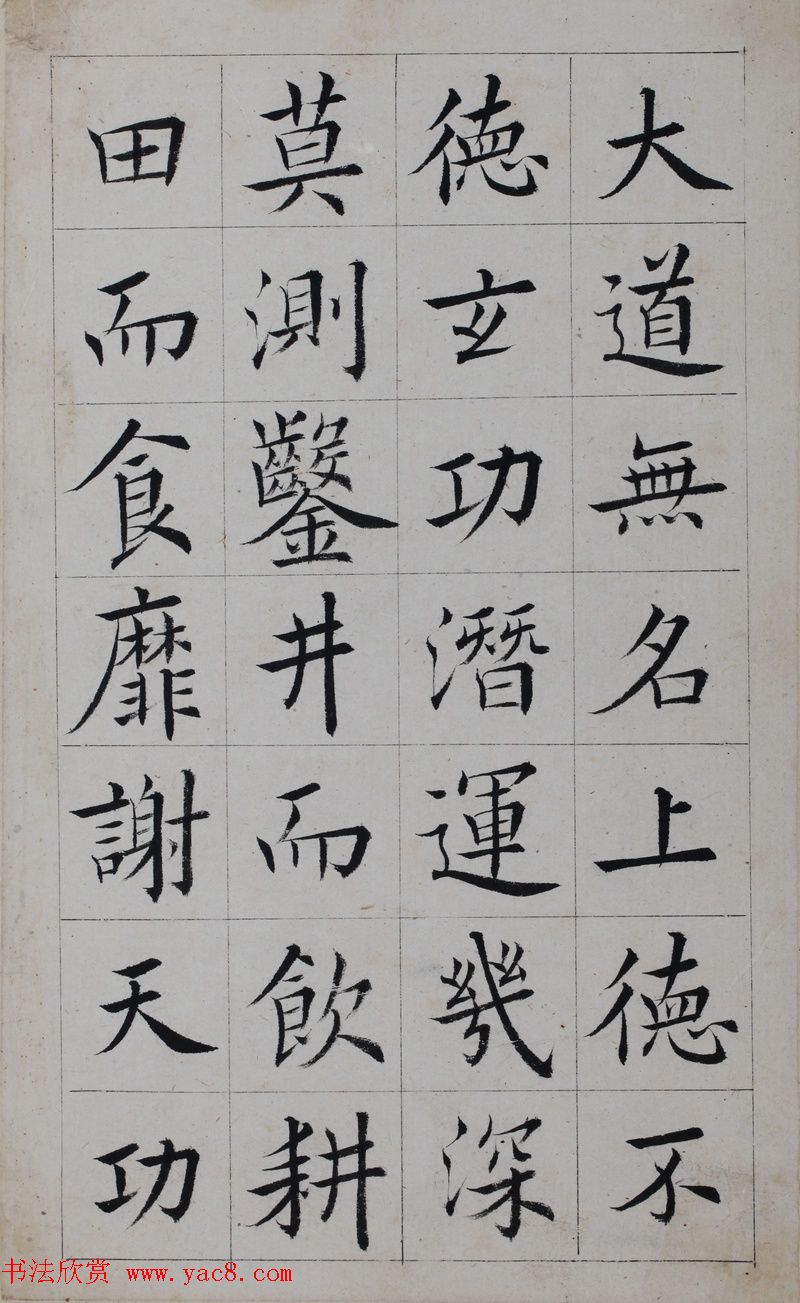 大道無名上德不
德玄功潛運幾深
莫測鑿井而飲耕
田而食靡謝天功
书法欣赏 www.yac8.com